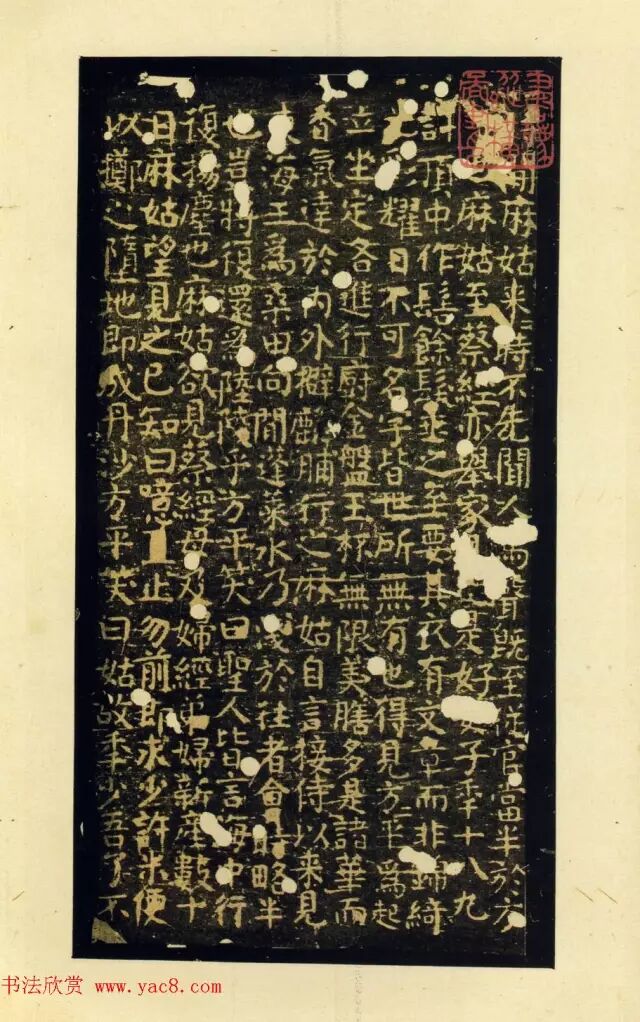 間麻姑來時不先聞人馬聲既至從官當半於方
麻姑至蔡經亦舉家是好女子年十八九
許頂中作髻餘髮垂之至要其衣有文章而非錦綺
光彩耀日不可名字皆世所無有也得見方平為起
立坐定各進行廚金盤玉杯無限美膳多是諸華而
香氣達於內外擗麟脯行之麻姑自言接侍以來見
東海三為桑田向間蓬萊水乃淺於往者會時略半
也豈將復還為陸陵乎方平笑曰聖人皆言海中行
復揚塵也麻姑欲見蔡經母及婦經弟婦新產數十
日麻姑望見之已知曰噫且止勿前即求少許米便
以擲之墮地即成丹沙方平笑曰姑故年少吾了不
书法欣赏 www.yac8.com